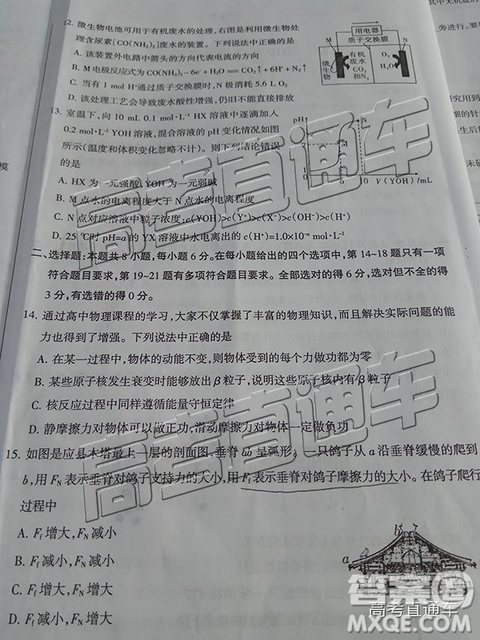 12. 微生物电池可用于有机废水的处理,右图是利用微生物处
理含尿素[CO(NH₂)₂]废水的装置。下列说法中正确的是
A. 该装置外电路中箭头的方向代表电流的方向
B. M电极反应式为
C. 当有1 mol H⁺通过质子交换膜时,N极消耗5.6 L O₂
D. 该处理工艺会导致废水酸性增强,仍旧不能直接排放
用电器
质子交换膜
微生物
有机废水
CO₂和N₂
O₂
H₂O
M
N
13. 室温下,向10 mL 0.1 mol·L⁻¹ HX溶液中逐滴加入
0.2 mol·L⁻¹ YOH溶液,混合溶液的pH变化情况如图
所示(温度和体积变化忽略不计)。则下列结论错误
的是
A. HX为一元强酸,YOH为一元弱碱
B. M点水的电离程度大于N点水的电离程度
C. N点对应溶液中粒子浓度:c(YOH)>c(Y⁺)>c(X⁻)>c(OH⁻)>c(H⁺)
D. 25℃时pH=a的YX溶液中水电离出的c(H⁺)=1.0×10⁻ᵃ mol·L⁻¹
pH
M
N
V(YOH)/mL
二、选择题:本题共8小题,每小题6分。在每小题给出的四个选项中,第14~18题只有一项
符合题目要求,第19~21题有多项符合题目要求。全部选对的得6分,选对但不全的得
3分,有选错的得0分。
14. 通过高中物理课程的学习,大家不仅掌握了丰富的物理知识,而且解决实际问题的能
力也得到了增强。下列说法中正确的是
A. 在某一过程中,物体的动能不变,则物体所受到的每个力做功都为零
B. 某些原子核发生衰变时能够放出β粒子,说明这些原子核内有β粒子
C. 核反应过程中同样遵循能量守恒定律
D. 静摩擦力对物体可以做正功,滑动摩擦力对物体一定做负功
15. 如图是应县木塔最上一层的剖面图,垂脊ab呈弧形。一只鸽子从a沿垂脊缓慢的爬到
b,用FN表示垂脊对鸽子支持力的大小,用Ff表示垂脊对鸽子摩擦力的大小。在鸽子爬行
过程中
A. Ff增大,FN减小
B. Ff减小,FN减小
C. Ff增大,FN增大
D. Ff减小,FN增大
a
b
模
高考直通车
高考直通车
高考直通车
答案圈
MXQE.COM